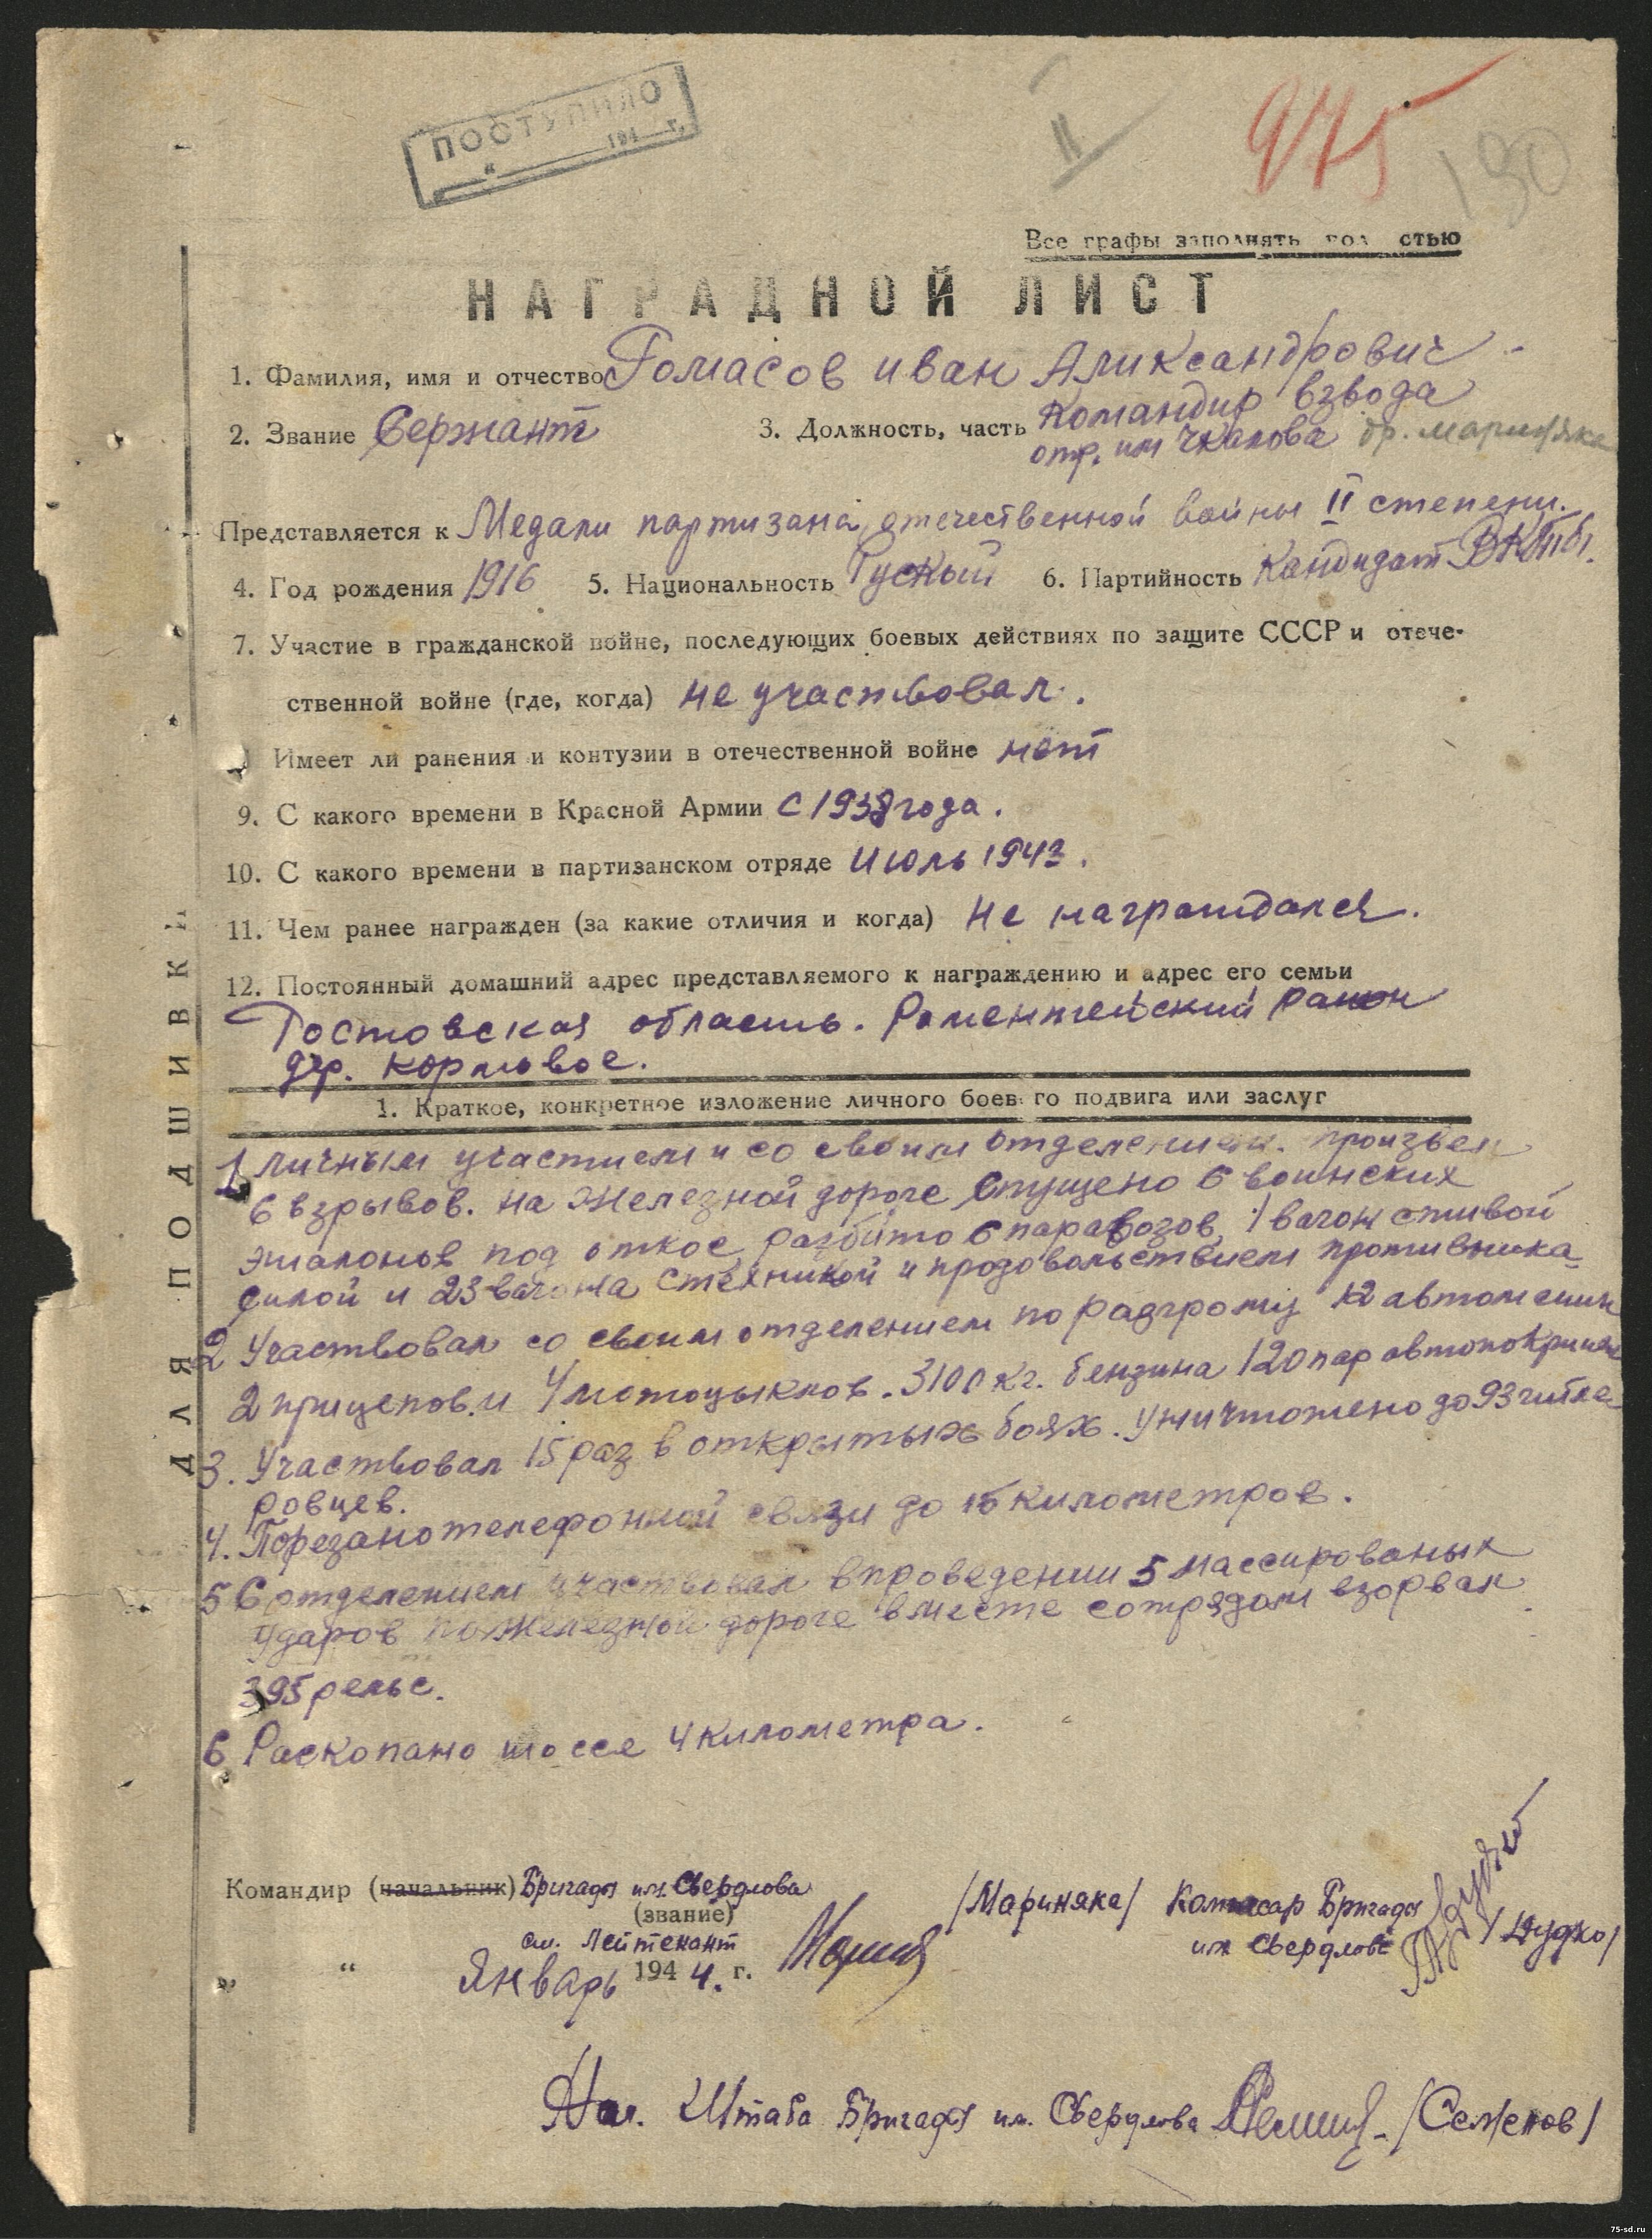 ПОСТУПИЛО
"___"______194__г.
II
975
190
Все графы заполнять пол стью
НАГРАДНОЙ ЛИСТ
1. Фамилия, имя и отчество Ромасов иван Аликсандрович
2. Звание Сержант 3. Должность, часть Командир взвода
отр. им Чкалова бр. мариняка
Представляется к Медали партизана отечественной войны II степени.
4. Год рождения 1916 5. Национальность Руский 6. Партийность Кандидат ВКПб.
7. Участие в гражданской войне, последующих боевых действиях по защите СССР и отече-
ственной войне (где, когда) не участвовал.
Имеет ли ранения и контузии в отечественной войне нет
9. С какого времени в Красной Армии с 1938 года.
10. С какого времени в партизанском отряде Июль 1943.
11. Чем ранее награжден (за какие отличия и когда) Не награждался.
12. Постоянный домашний адрес представляемого к награждению и адрес его семьи
Ростовская область. район
дер. Кормовое.
1. Краткое, конкретное изложение личного боев го подвига или заслуг
1 личным участием и со своим отделением. произвел
6 взрывов. на железной дороге спущено 6 воинских
эшалонов под откос, разбито 6 паравозов, 1 вагон с живой
силой и 23 вагона с техникой и продовольствием противника
2 Участвовал со своим отделением по разгрому 12 автомашин
2 прицепов. и 4 мотоцыклов. 3100 кг. бензина 120 пар автопокрышек
3. Участвовал 15 раз в открытых боях. Уничтожено до 93 гитле
ровцев.
4. Порезано телефонной связи до 15 километров.
5 С отделением участвовал в проведении 5 массированых
ударов по железной дороге вместе с отрядом взорвал
395 рельс.
6 Раскопано шоссе 4 километра.
ДЛЯ ПОДШИВКИ
Командир (начальник) Бригады им. Свердлова /Мариняка/ Комисар Бригады
(звание)
ст. Лейтенант им Свердлова /Дудко/
" " Январь 1944. г.
Нач. Штаба Бригады им. Свердлова /Семенов/
75-sd.ru